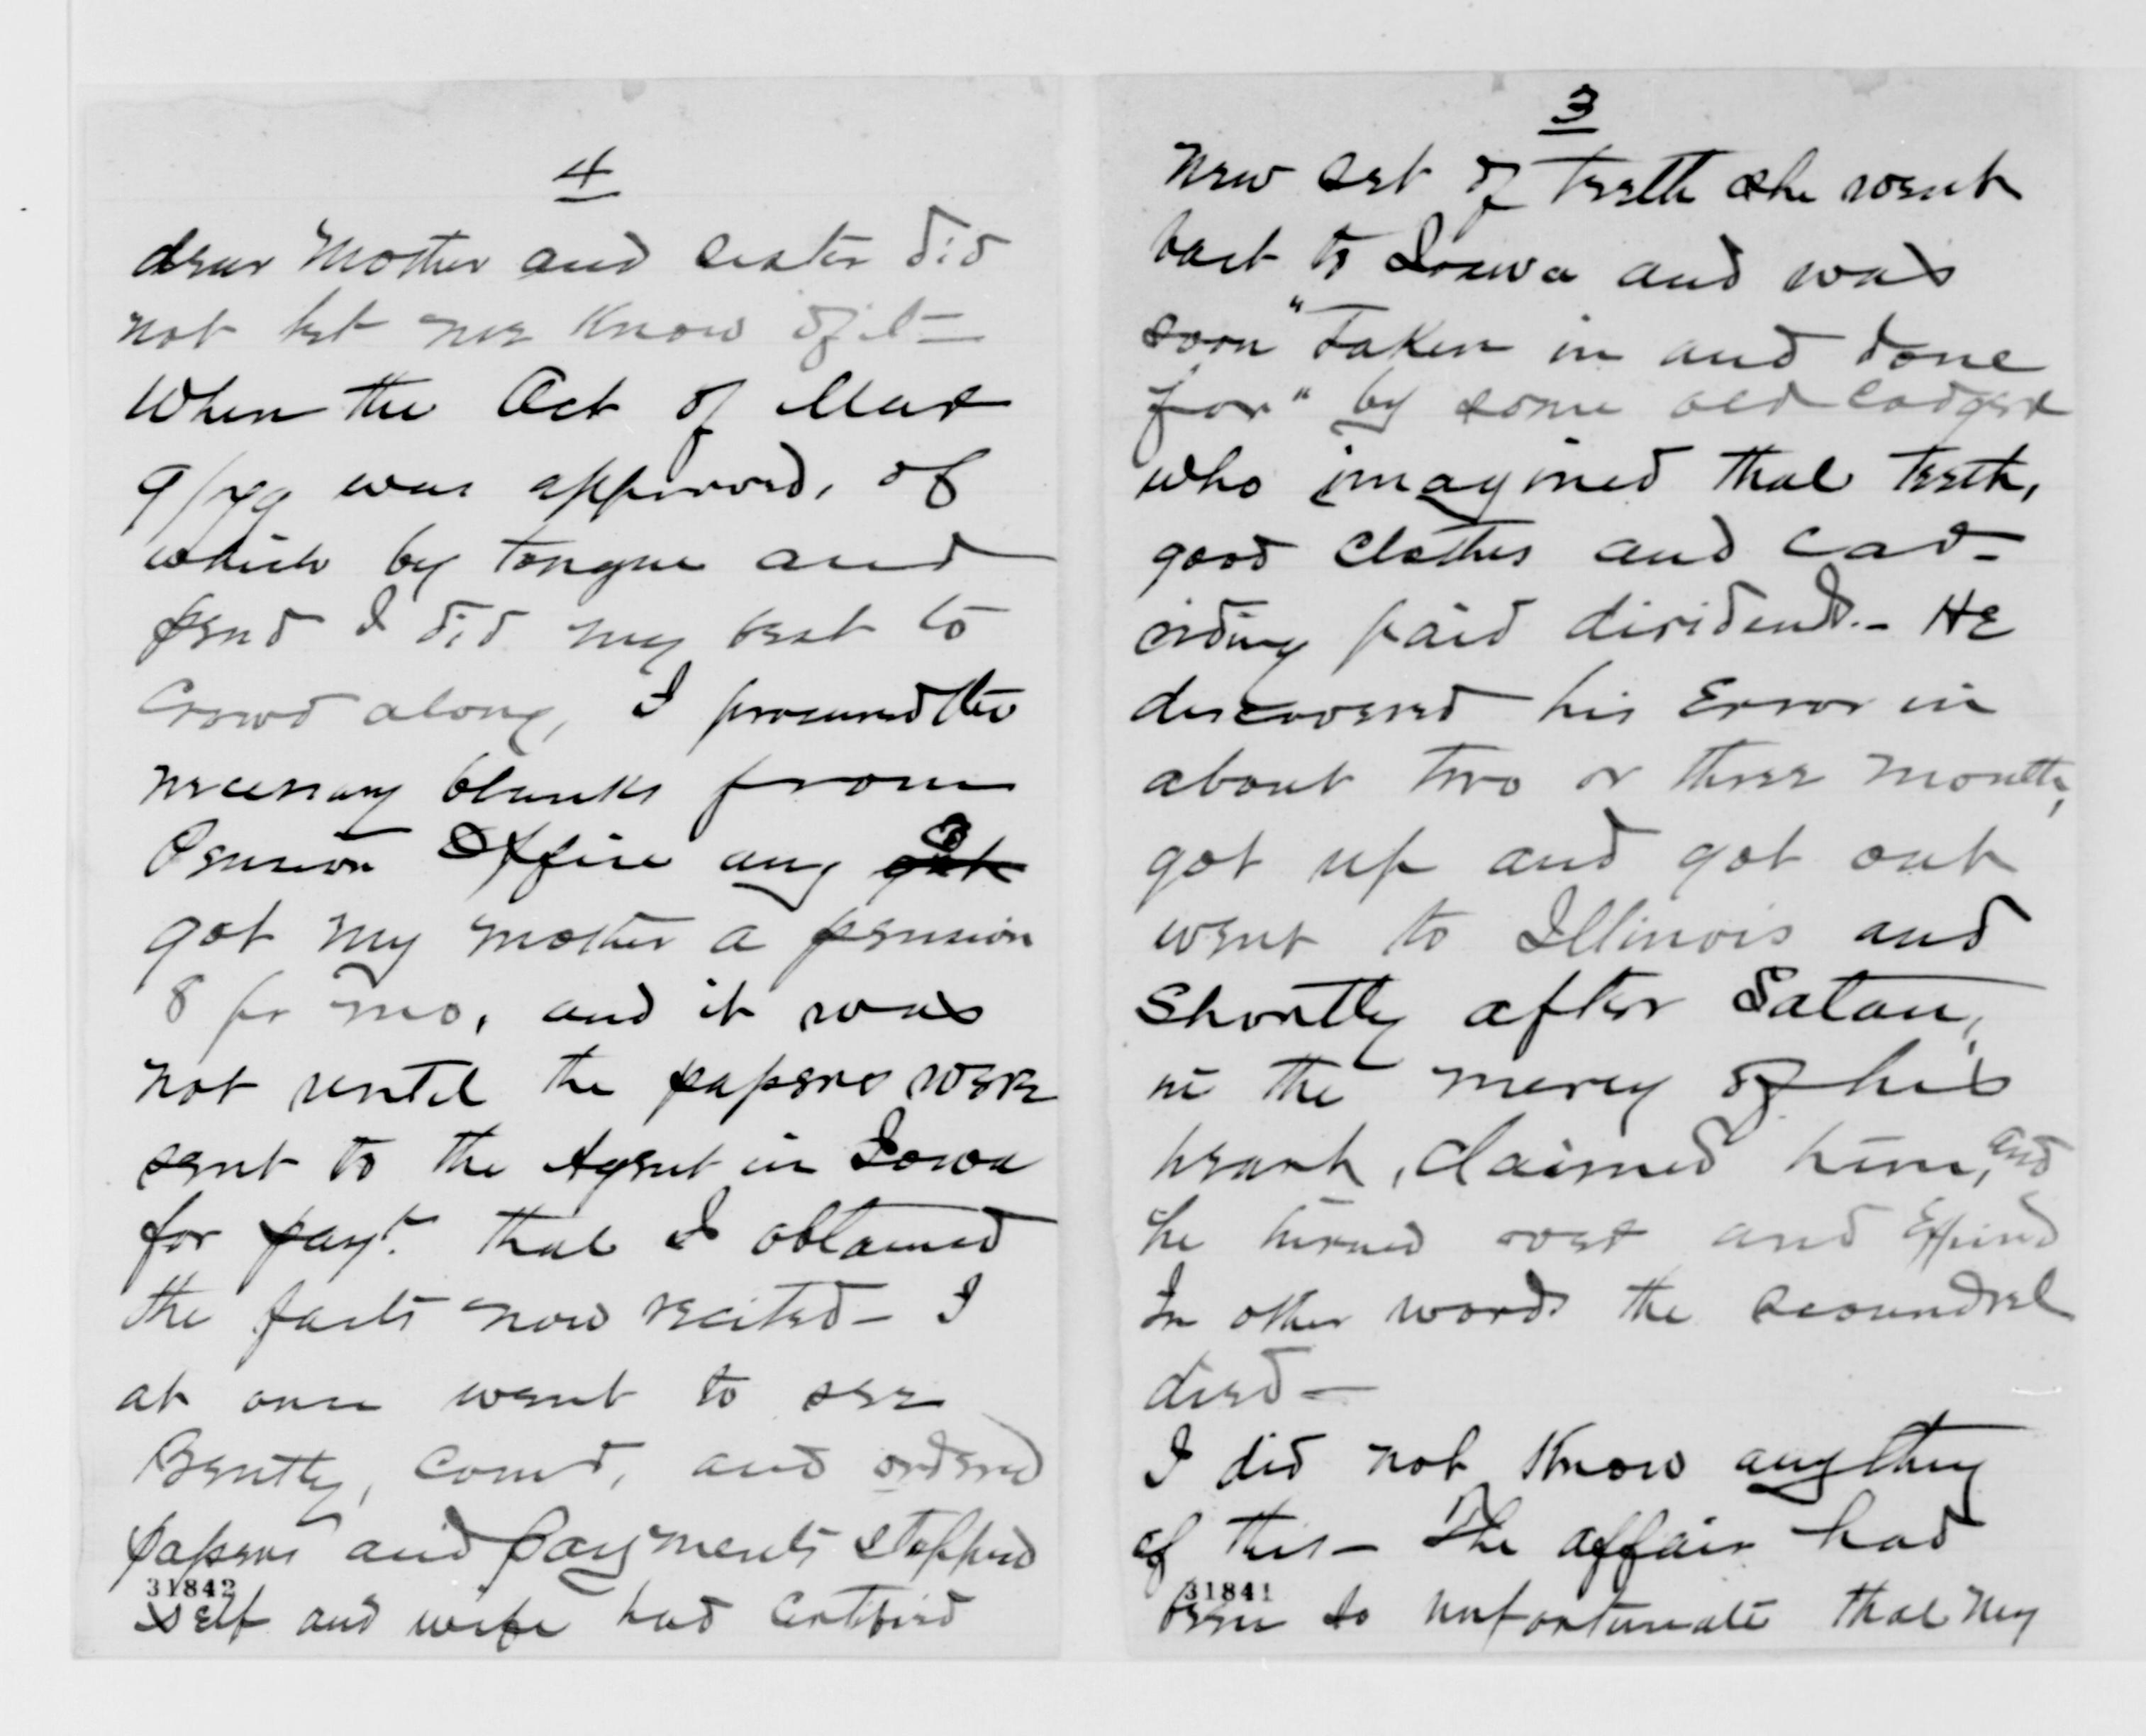 3
new set of teeth she went
back to Iowa and was
soon "taken in and done
for" by some old codger
who imagined that teeth,
good clothes and car-
riding paid dividends.- He
discovered his error in
about two or three months,
got up and got out
went to Illinois and
Shortly after Satan,
in the mercy of his
heart, claimed him, and
he turned over and Expired
In other words the scoundrel
died-
I did not know anything
of this- The affair had
31841
been so unfortunate that my
4
dear Mother and sister did
not let me know of it-
When the Act of Mar
9/79 was approved, of
which by tongue and
pend I did my best to
Crowd along, I procured the
necessary blanks from
Pension Office any got
got my mother a pension
8 pr mo, and it was
not until the papers were
sent to the Agent in Iowa
for payt. that I obtained
the facts now recited- I
at once went to see
Bently, Comd, and ordered
papers and payments stopped
31842
self and wife had certified